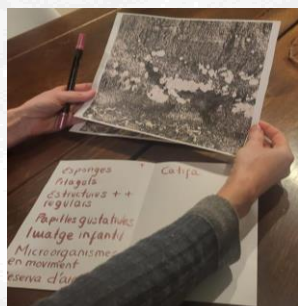 Esponges
Pitagols
Estructures ++
regulars
Papilles gustatives
Imatge infantil
Microorganismes
en moviment
Reserva d'ai
+
Catifa